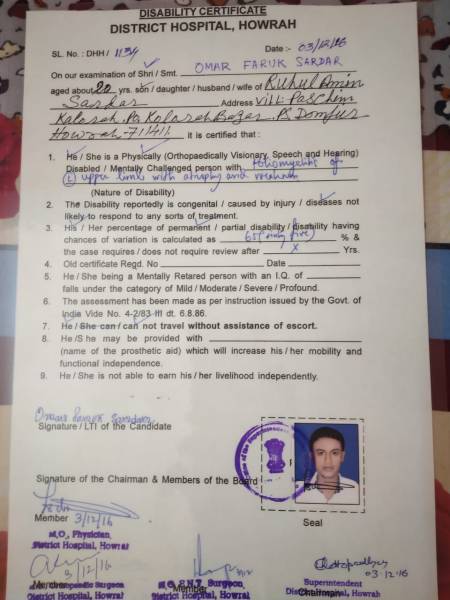 DISABILITY CERTIFICATE
DISTRICT HOSPITAL, HOWRAH
SL. No. : DHH / 1134 Date :- 03/12/16
On our examination of Shri / Smt. OMAR FARUK SARDAR
aged about 20 yrs. son / daughter / husband / wife of Ruhul Amin
Sardar Address Vill-Paschim
Kalorah. Po. Kalorah Bazar. P.S Domjur
Howrah-711411 it is certified that :
1. He / She is a Physically (Orthopaedically Visionary, Speech and Hearing)
Disabled / Mentally Challenged person with Poliomyelitis of
(L) upper limb with atrophy and weakness
(Nature of Disability)
2. The Disability reportedly is congenital / caused by injury / diseases not
likely to respond to any sorts of treatment.
3. His / Her percentage of permanent / partial disability / disability having
chances of variation is calculated as 65 (sixty five) % &
the case requires / does not require review after x Yrs.
4. Old certificate Regd. No Date
5. He / She being a Mentally Retared person with an I.Q. of
falls under the category of Mild / Moderate / Severe / Profound.
6. The assessment has been made as per instruction issued by the Govt. of
India Vide No. 4-2/83 III dt. 6.8.86.
7. He / She can / can not travel without assistance of escort.
8. He / S he may be provided with
(name of the prosthetic aid) which will increase his / her mobility and
functional independence.
9. He / She is not able to earn his / her livelihood independently.
Omar Faruk Sardar
Signature / LTI of the Candidate
Signature of the Chairman & Members of the Board
Seal
Member 3/12/16
M.O., Physician,
District Hospital, Howrah
3/12/16
Member
Orthopaedic Surgeon
District Hospital, Howrah
M.O., E.N.T. Surgeon,
Member
District Hospital, Howrah
03.12.16
Superintendent
Chairman
District Hospital, Howrah